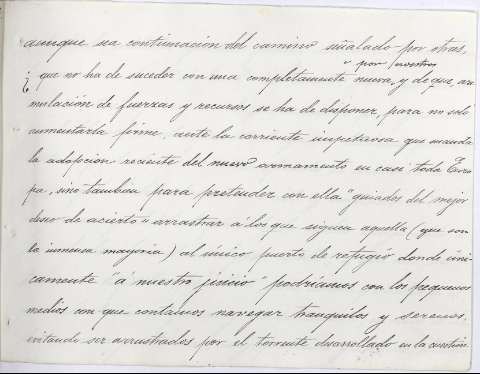 aunque sea continuación del camino señalado por otras,
" por nuestro
¿ que no ha de suceder con una completamente nueva, y de que, acu
mulación de fuerzas y recursos se ha de disponer, para no solo
aumentarla firme, ante la corriente impetuosa que manda
la adopcion reciente del nuevo armamento en casi toda Euro
pa, sino tambien para pretender con ella "guiados del mejor
deseo de acierto" arrastrar á los que siguen aquella (que son
la inmensa mayoria) al único puerto de refugio donde úni
camente "á nuestro juicio" podriamos con los pequeños
medios con que contamos navegar tranquilos y serenos,
evitando ser arrastrados por el torrente desarrollado en la cuestión